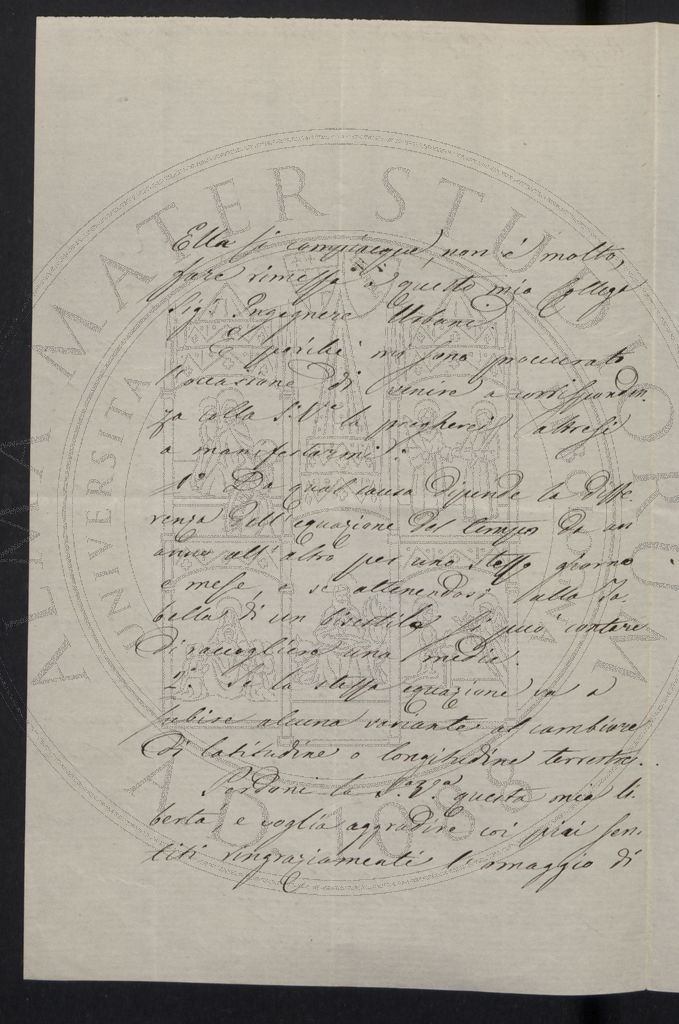 Ella si compiacque, non è molto,
fare rimessa a questo mio Collega
Sig. Ingegnere Urbani.
E poichè mi sono procurato
l'occasione di venire a corrisponden-
za colla S. V. la pregherei altresì
a manifestarmi:
1° Da qual causa dipende la diffe
renza dell'equazione del tempo da un
anno all'altro per uno stesso giorno
e mese, e se attenendosi alla Ta-
bella di un bisestile si può contare
di raccogliere una media.
2° Se la stessa equazione va a
subire alcuna variante al cambiare
di latitudine o longitudine terrestre.
Perdoni la S. V. questa mia li-
bertà e voglia aggradire coi più sen-
titi ringraziamenti l'omaggio di
ALMA MATER STUDIORUM
UNIVERSITÀ
A.D. 1088